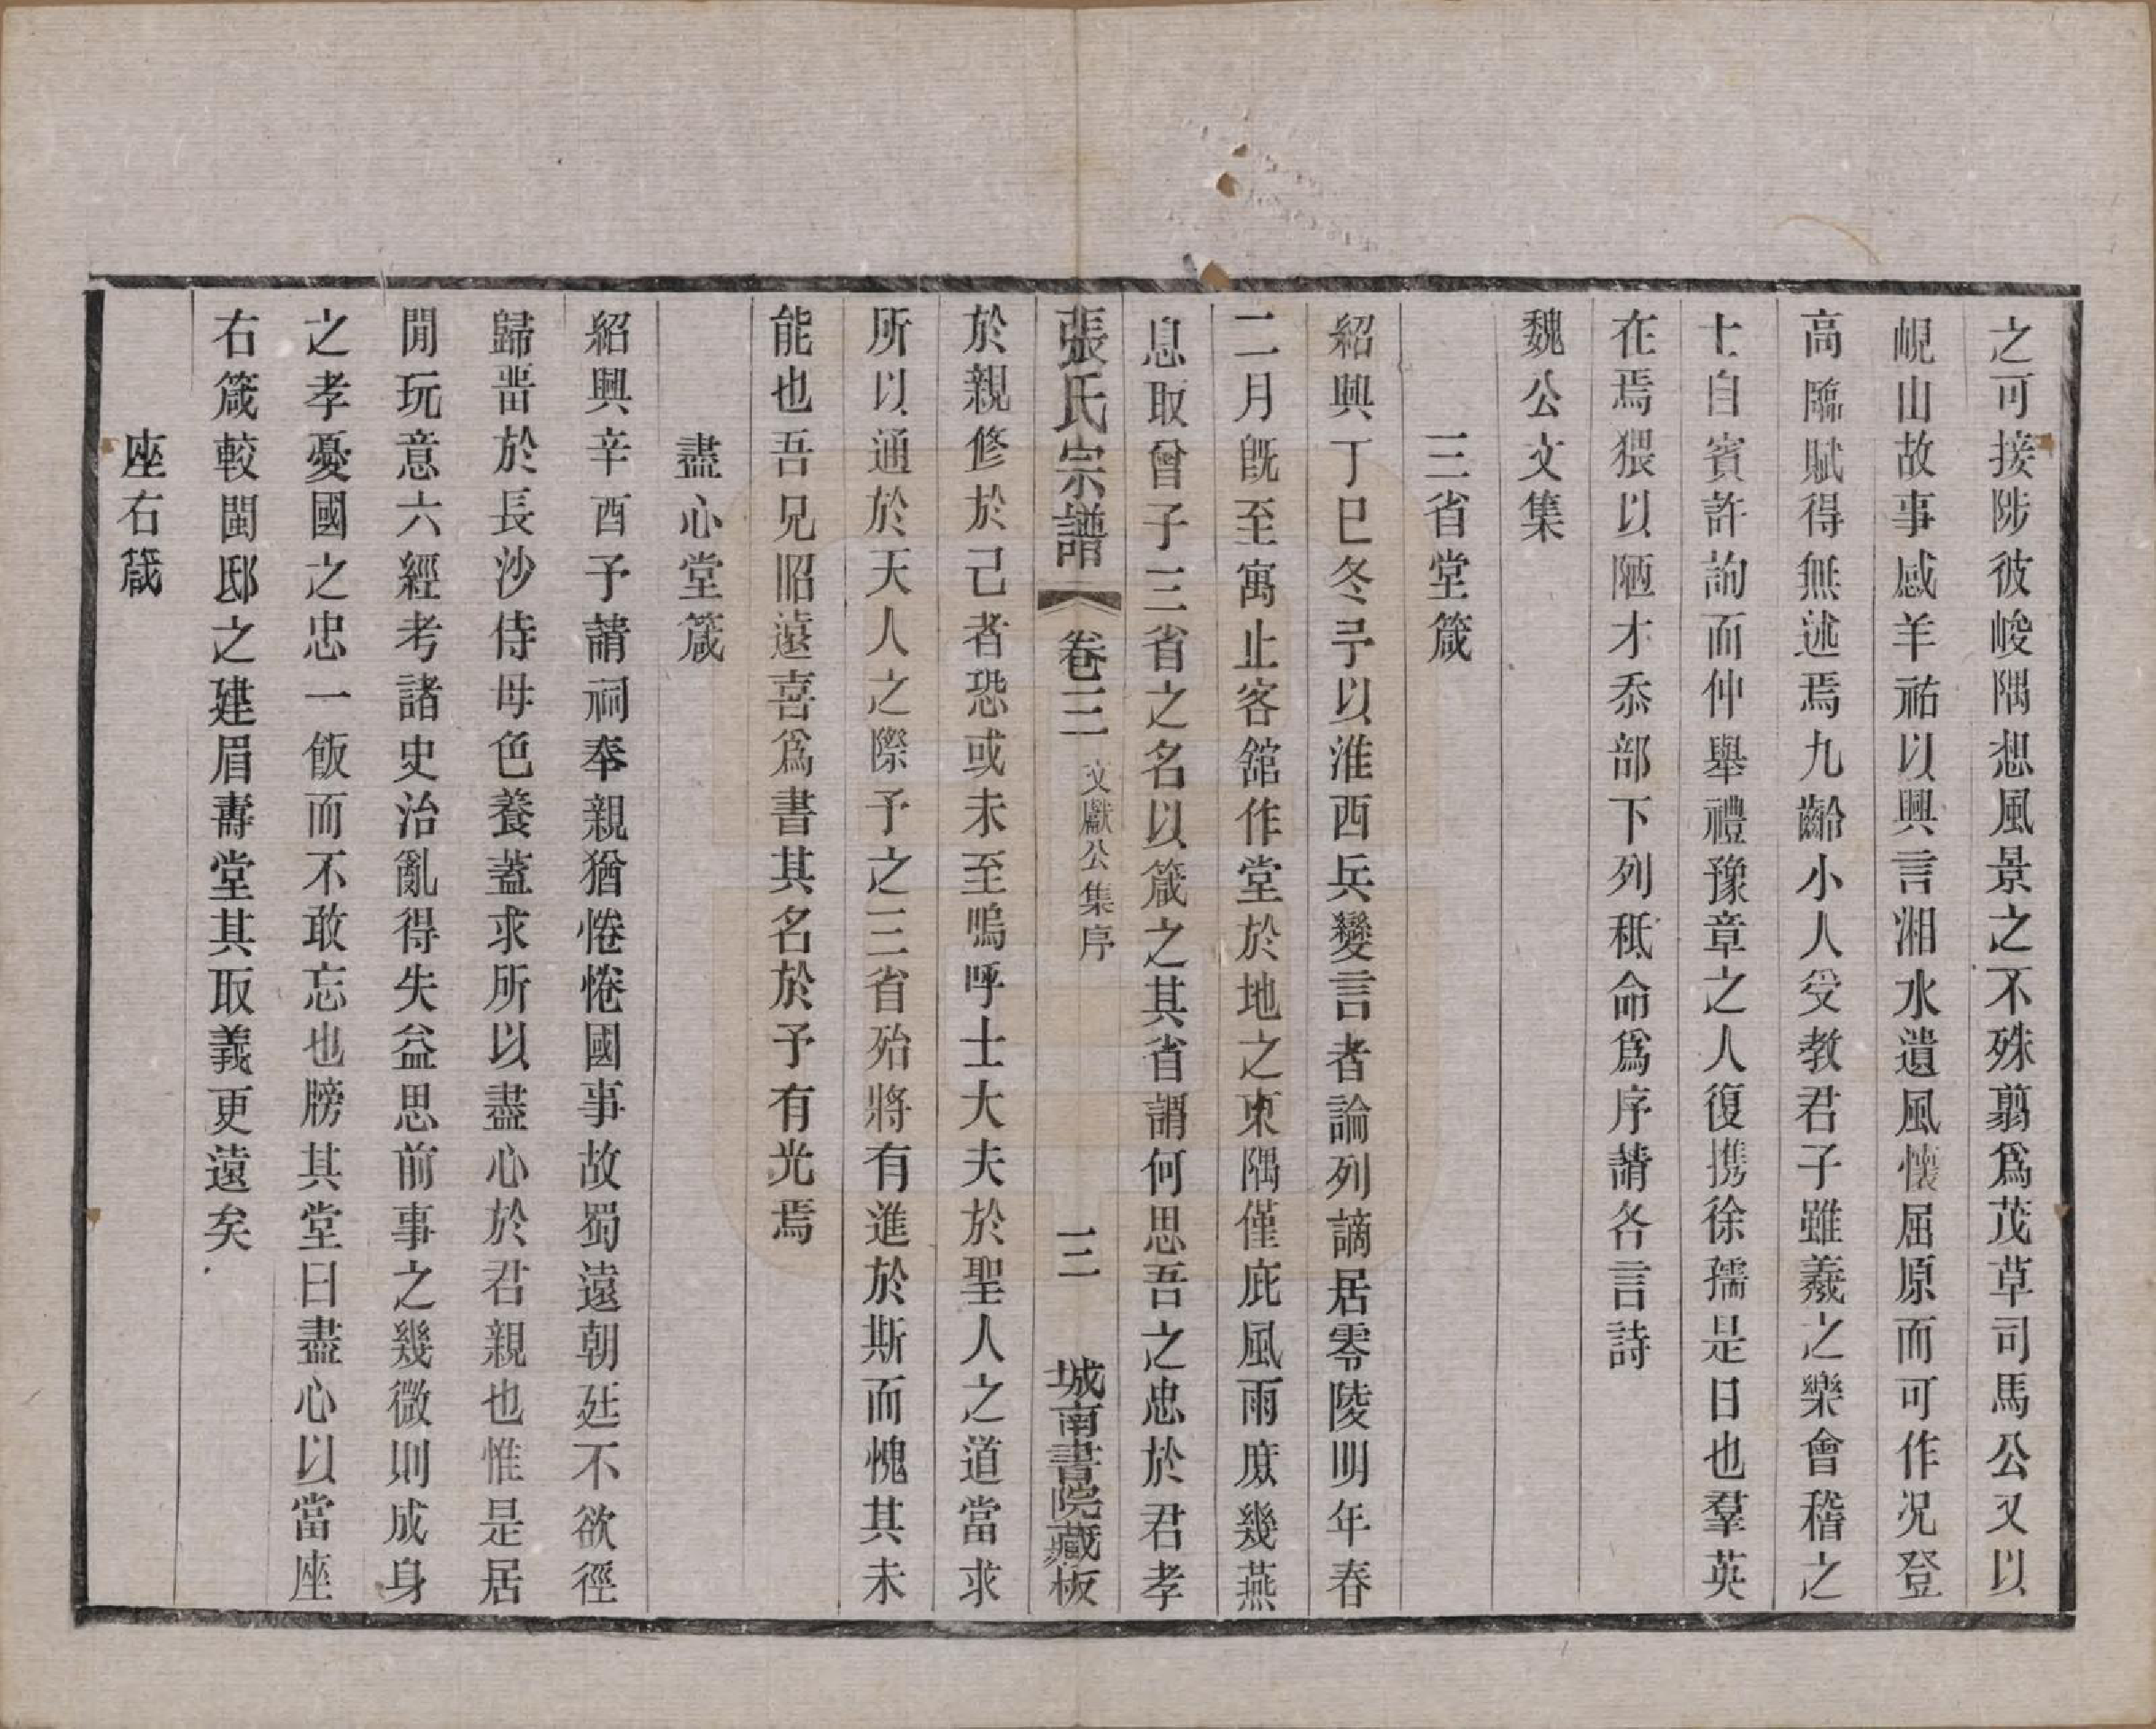 之可接陟彼峻隅想風景之不殊翦爲茂草司馬公又以
峴山故事感羊祐以興言湘水遺風懷屈原而可作况登
高臨賦得無述焉九齡小人受教君子雖羲之樂會稽之
士自賓許詢而仲舉禮豫章之人復携徐孺是日也羣英
在焉猥以陋才忝部下列秪命爲序請各言詩
魏公文集
三省堂箴
紹興丁巳冬予以淮西兵變言者論列謫居零陵明年春
二月旣至寓止客舘作堂於地之東隅僅庇風雨庶幾燕
息取曾子三省之名以箴之其省謂何思吾之忠於君孝
張氏宗譜 卷三 文獻公集序 三 城南書院藏板
於親修於己者恐或未至嗚呼士大夫於聖人之道當求
所以通於天人之際予之三省殆將有進於斯而愧其未
能也吾兄昭遠喜爲書其名於予有光焉
盡心堂箴
紹興辛酉予請祠奉親猶惓惓國事故蜀遠朝廷不欲徑
歸畱於長沙侍母色養蓋求所以盡心於君親也惟是居
閒玩意六經考諸史治亂得失益思前事之幾微則成身
之孝憂國之忠一飯而不敢忘也牓其堂曰盡心以當座
右箴較閩邸之建眉壽堂其取義更遠矣
座右箴